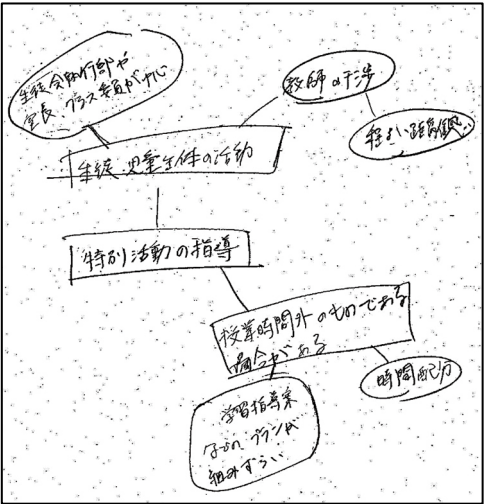 生徒会執行部や
室長、クラス委員が中心
教師の干渉
程よい距離感
生徒、児童主体の活動
特別活動の指導
授業時間外のものである
場合がある
時間配分
学習指導案
などの、プランが
組みずらい